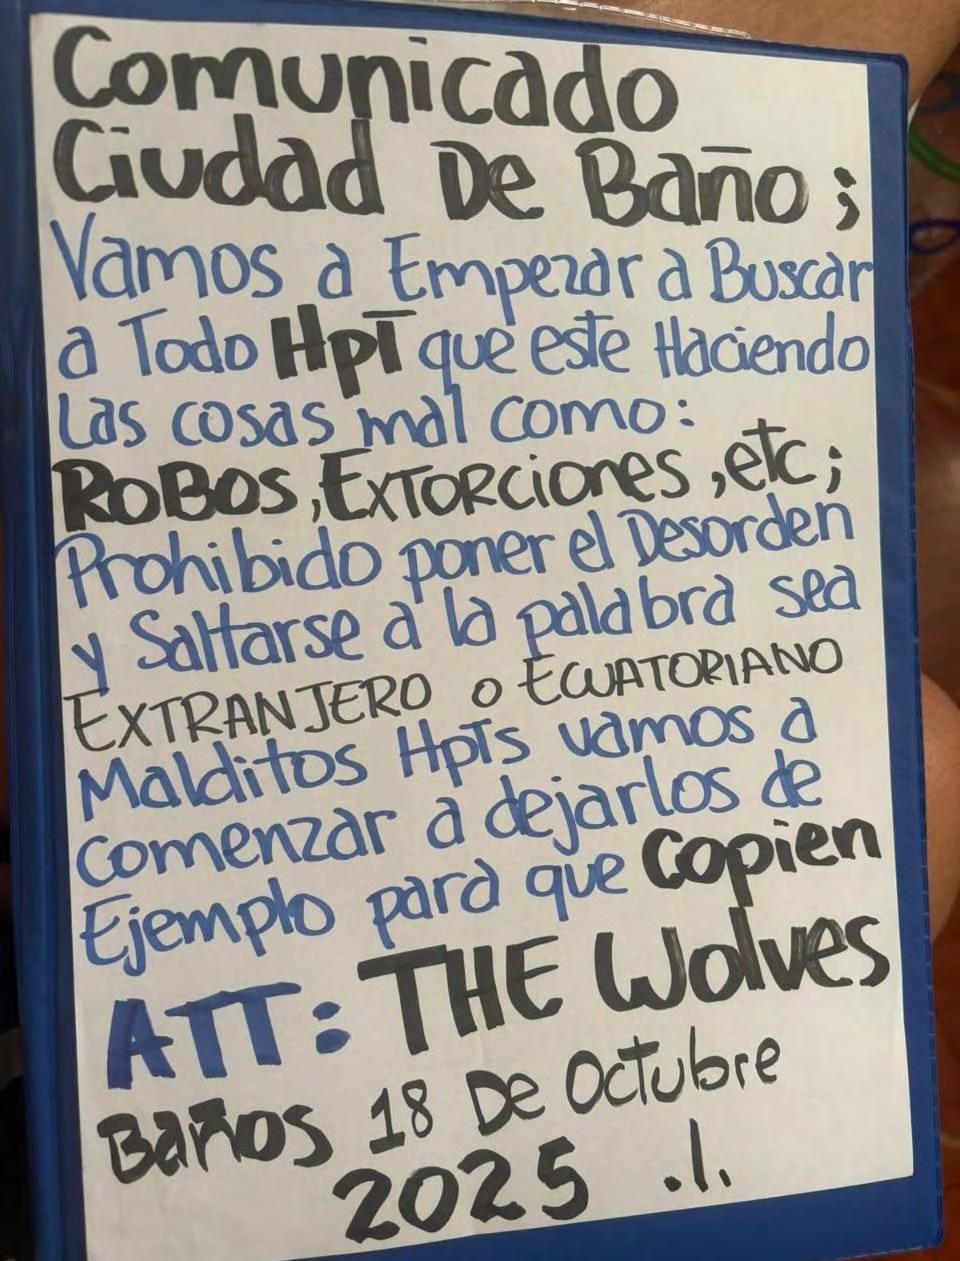 Comunicado
Ciudad De Baño;
Vamos a Empezar a Buscar
a Todo Hpt que este Haciendo
Las cosas mal como:
ROBOS, EXTORciones, etc;
Prohibido poner el Desorden
y Saltarse a la palabra sea
EXTRANJERO o ECUATORIANO
Malditos Hpts vamos a
comenzar a dejarlos de
Ejemplo para que copien
ATT: THE Wolves
Baños 18 De Octubre
2025 .1.